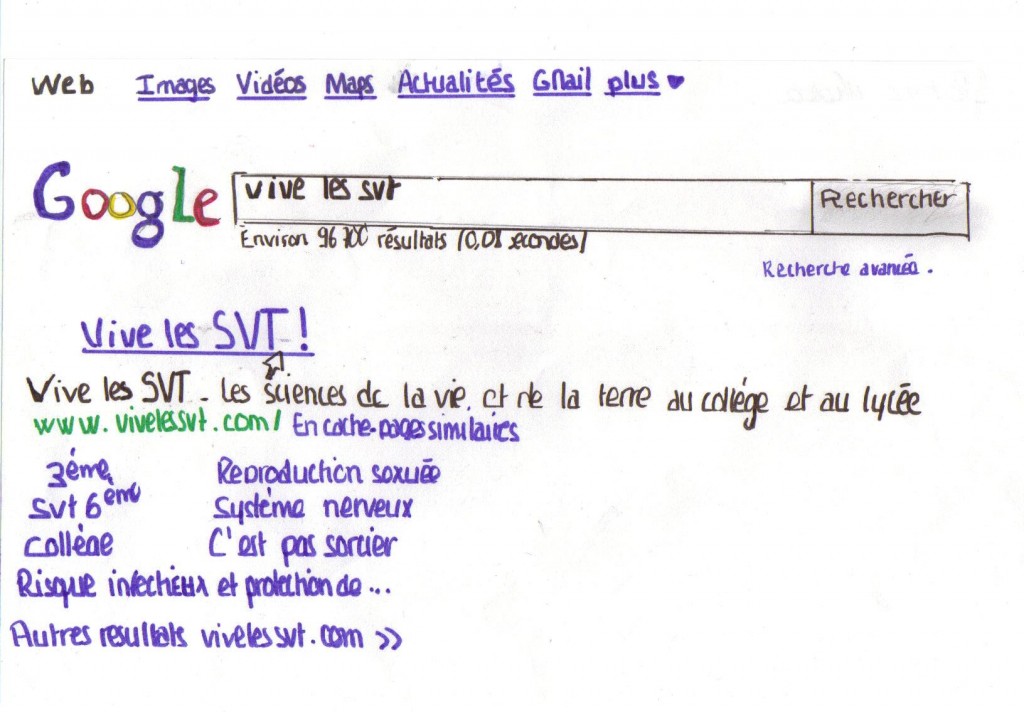 Web Images Vidéos Maps Actualités GMail plus
Google vive les svt Rechercher
Environ 96 700 résultats (0,08 secondes)
Recherche avancée.
Vive les SVT !
Vive les SVT - Les sciences de la vie et de la terre au collége et au lycée
www.vivelessvt.com/ En cache-pages similaires
3éme Reproduction sexuée
svt 6éme Système nerveux
collène C'est pas sorcier
Risque infectieux et protection de...
Autres resultats vivelessvt.com >>